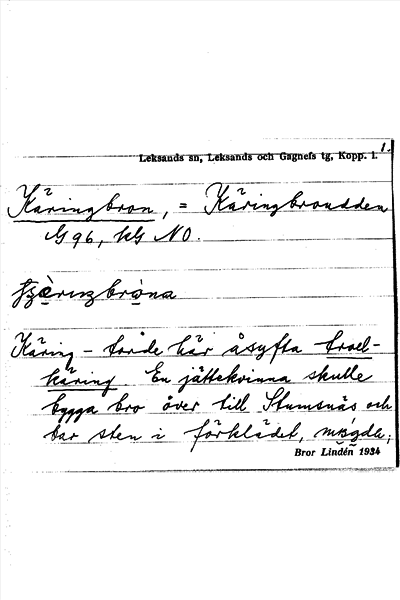 1.
Leksands sn, Leksands och Gagnefs tg, Kopp. l.
Käringbron, = Käringbroudden
G 96, kG NO.
Käring - torde här åsyfta troll-
käring. En jättekvinna skulle
bygga bro över till Stumsnäs och
bar sten i förklädet,
Bror Lindén 1934